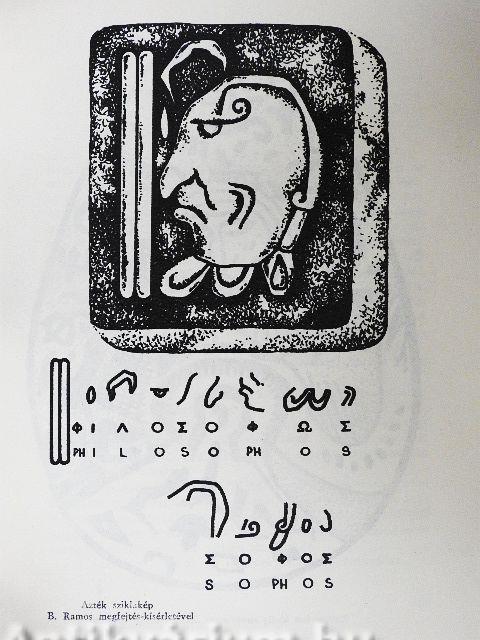 Φ Ι Λ Ο Σ Ο Φ Ω Σ
PH I L O S O PH O S
Σ Ο Φ Ο Σ
S O PH O S
Azték sziklakép
B. Ramos megfejtés-kísérletével